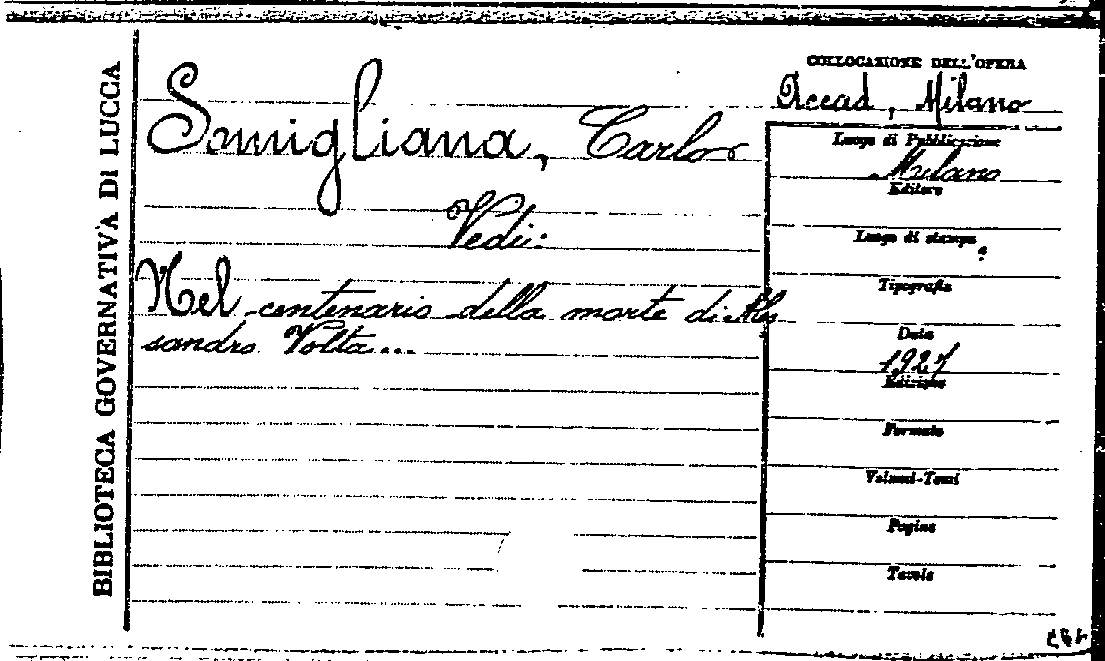 BIBLIOTECA GOVERNATIVA DI LUCCA
Somigliana, Carlo
Vedi:
Nel centenario della morte di Ales
sandro Volta...
COLLOCAZIONE DELL'OPERA
Accad. Milano
Luogo di Pubblicazione
Milano
Editore
Luogo di stampa
Tipografia
Data
1927
Edizione
Formato
Volumi-Tomi
Pagine
Tavole